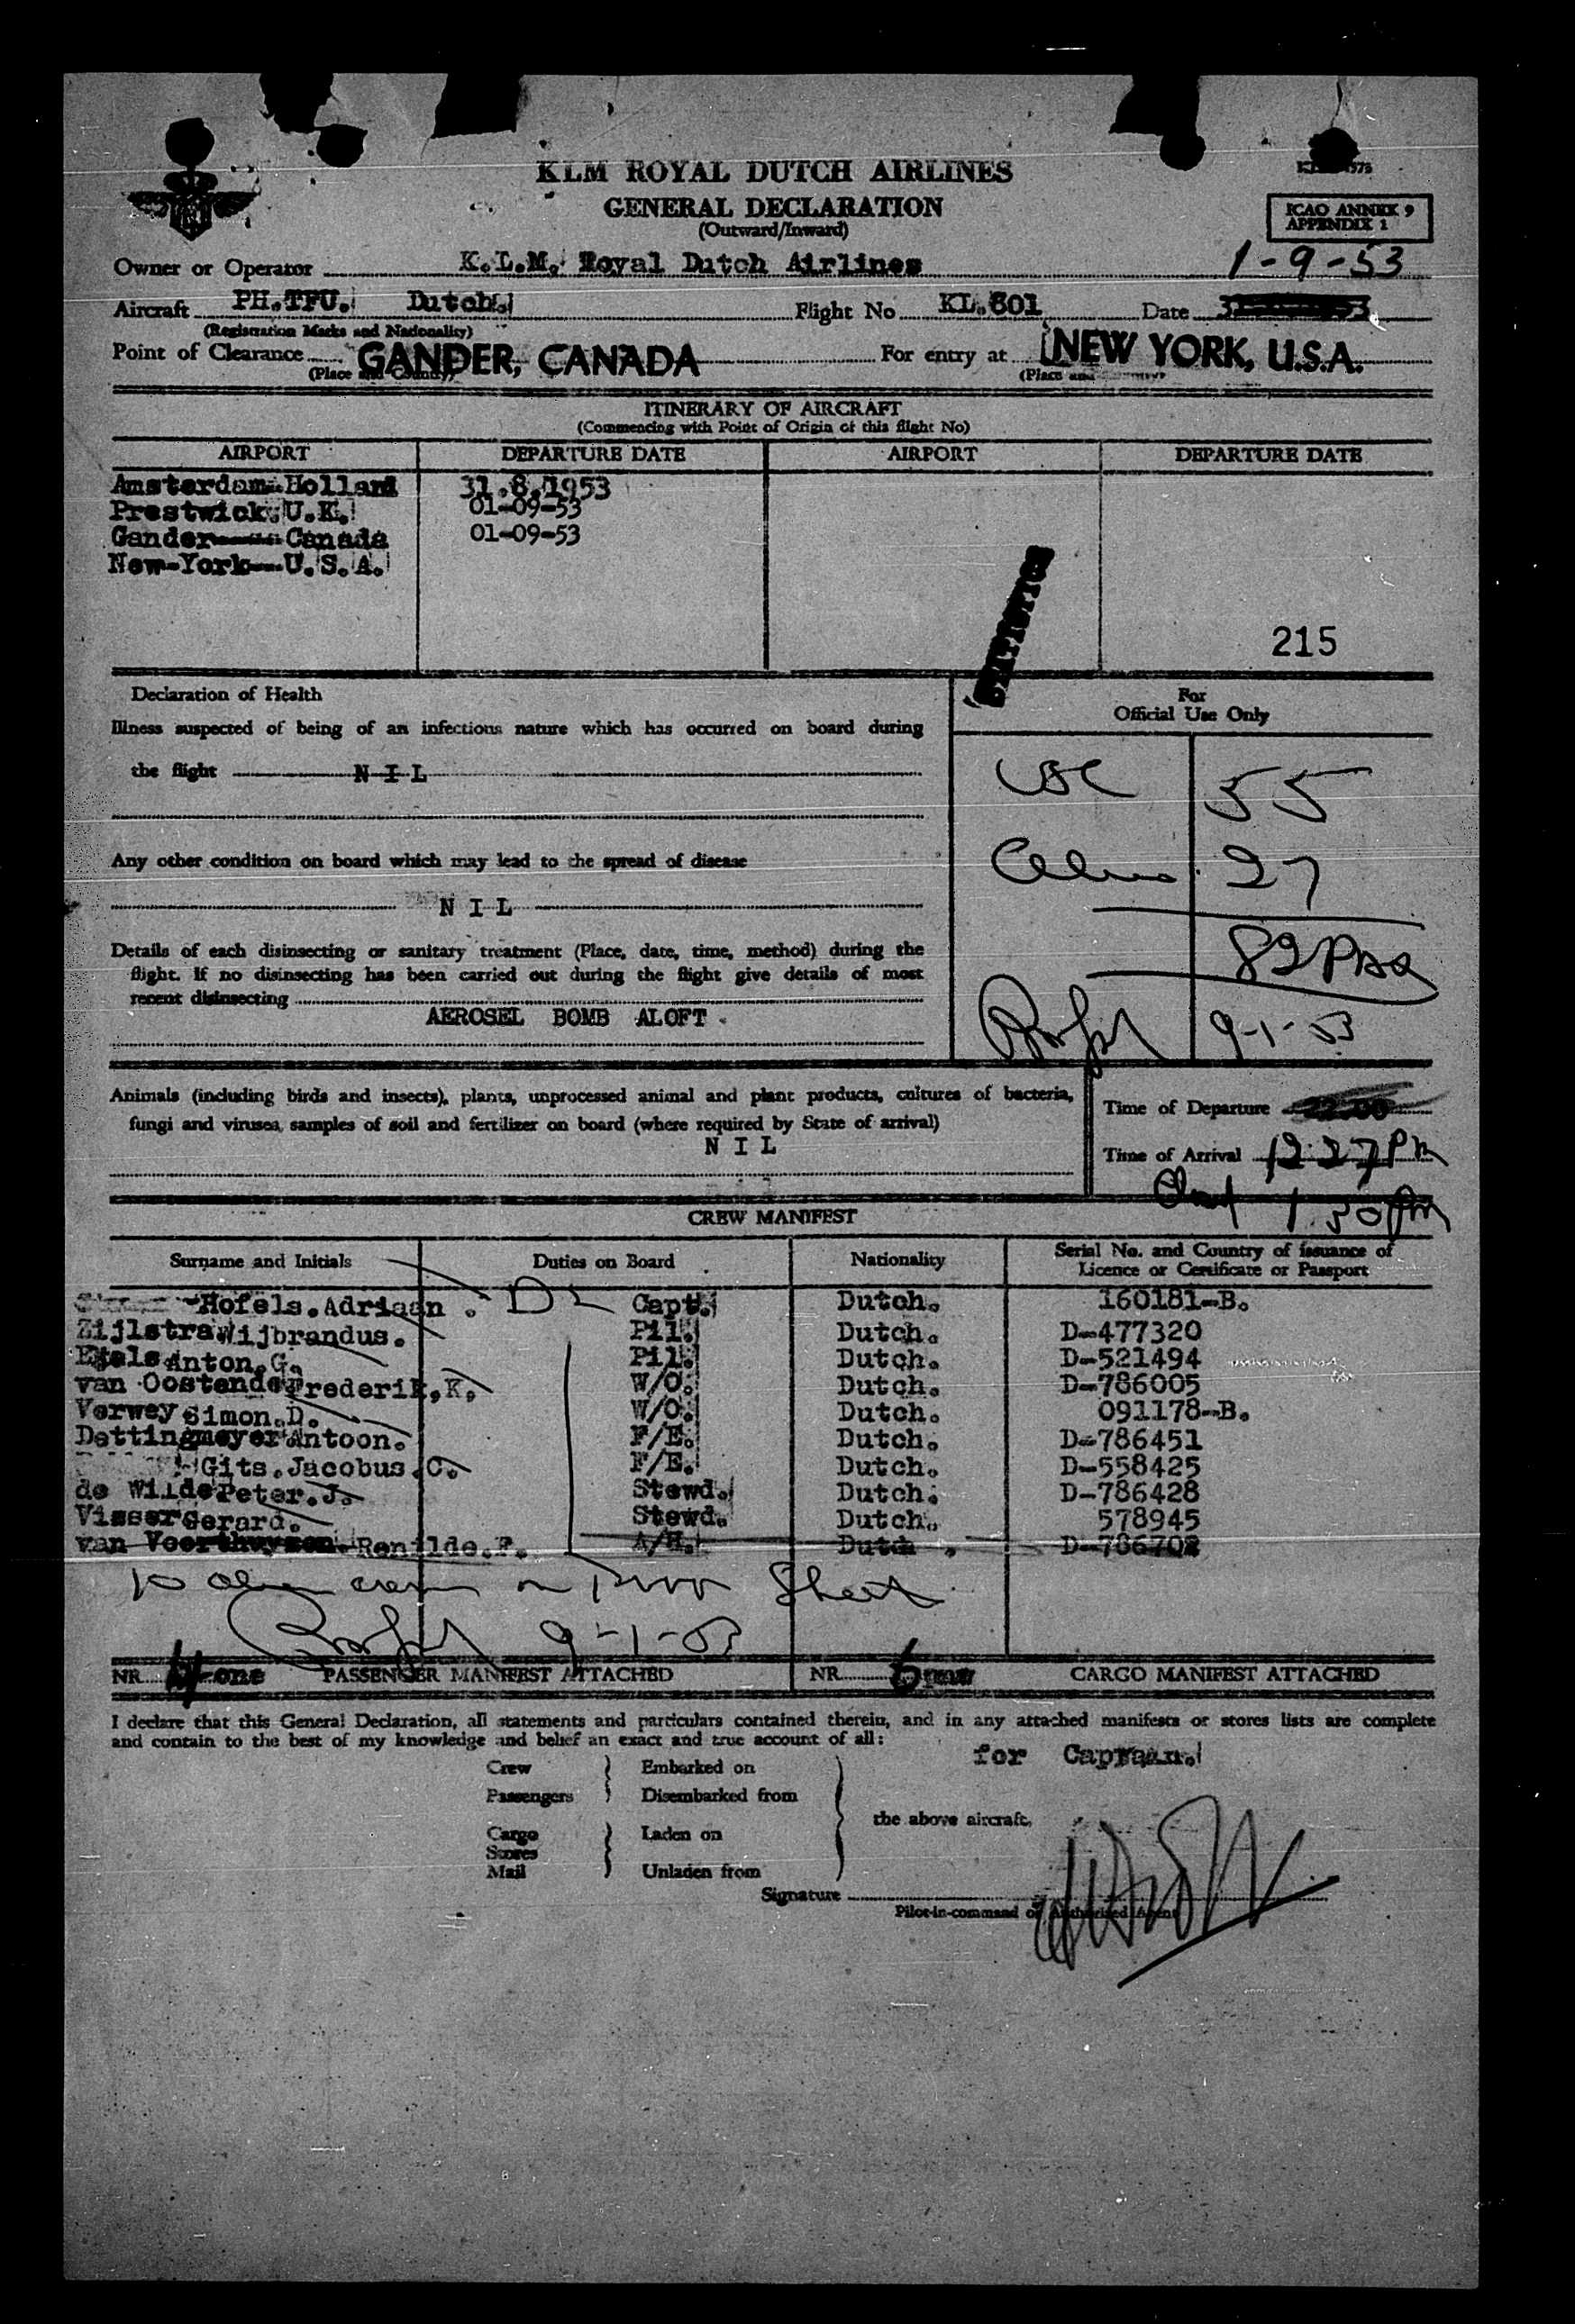 KLM ROYAL DUTCH AIRLINES
GENERAL DECLARATION
(Outward/Inward)
ICAO ANNEX 9
APPENDIX 1
Owner or Operator K.L.M. Royal Dutch Airlines 1-9-53
Aircraft PH.TFU. Dutch. Flight No KL.601 Date
(Registration Marks and Nationality)
Point of Clearance GANDER, CANADA For entry at NEW YORK, U.S.A.
(Place and Country) (Place and
ITINERARY OF AIRCRAFT
(Commencing with Point of Origin of this flight No)
AIRPORT DEPARTURE DATE AIRPORT DEPARTURE DATE
Amsterdam-Holland 31.8.1953
Prestwick.U.K. 01-09-53
Gander Canada 01-09-53
New-York U.S.A.
215
Declaration of Health
For
Official Use Only
Illness suspected of being of an infectious nature which has occurred on board during
the flight N I L
USC 55
Any other condition on board which may lead to the spread of disease
27
N I L
82
Details of each disinsecting or sanitary treatment (Place, date, time, method) during the
flight. If no disinsecting has been carried out during the flight give details of most
recent disinsecting
AEROSEL BOMB ALOFT
9-1-53
Animals (including birds and insects), plants, unprocessed animal and plant products, cultures of bacteria,
fungi and viruses, samples of soil and fertilizer on board (where required by State of arrival)
N I L
Time of Departure 22.00
Time of Arrival 12:27 PM
1.30 PM
CREW MANIFEST
Surname and Initials Duties on Board Nationality Serial No. and Country of issuance of
Licence or Certificate or Passport
Hofels.Adriaan. Capt. Dutch. 160181-B.
Zijlstra Wijbrandus. Pil. Dutch. D-477320
Anton.G. Pil. Dutch. D-521494
van Oostende Frederik.K. W/O. Dutch. D-786005
Verwey Simon.D. W/O. Dutch. 091178-B.
Dettingmeyer Antoon. F/E. Dutch. D-786451
Gits.Jacobus.C. F/E. Dutch. D-558425
de Wilde Peter.J. Stewd. Dutch. D-786428
Visser Gerard. Stewd. Dutch. 578945
van Voorthuyzen Renilde.P. A/H. Dutch. D-786702
9-1-53
NR 4 one PASSENGER MANIFEST ATTACHED NR 6 CARGO MANIFEST ATTACHED
I declare that this General Declaration, all statements and particulars contained therein, and in any attached manifests or stores lists are complete
and contain to the best of my knowledge and belief an exact and true account of all:
for Captain.
Crew Embarked on
Passengers Disembarked from
the above aircraft.
Cargo Laden on
Stores
Mail Unladen from
Signature
Pilot-in-command or Authorized Agent